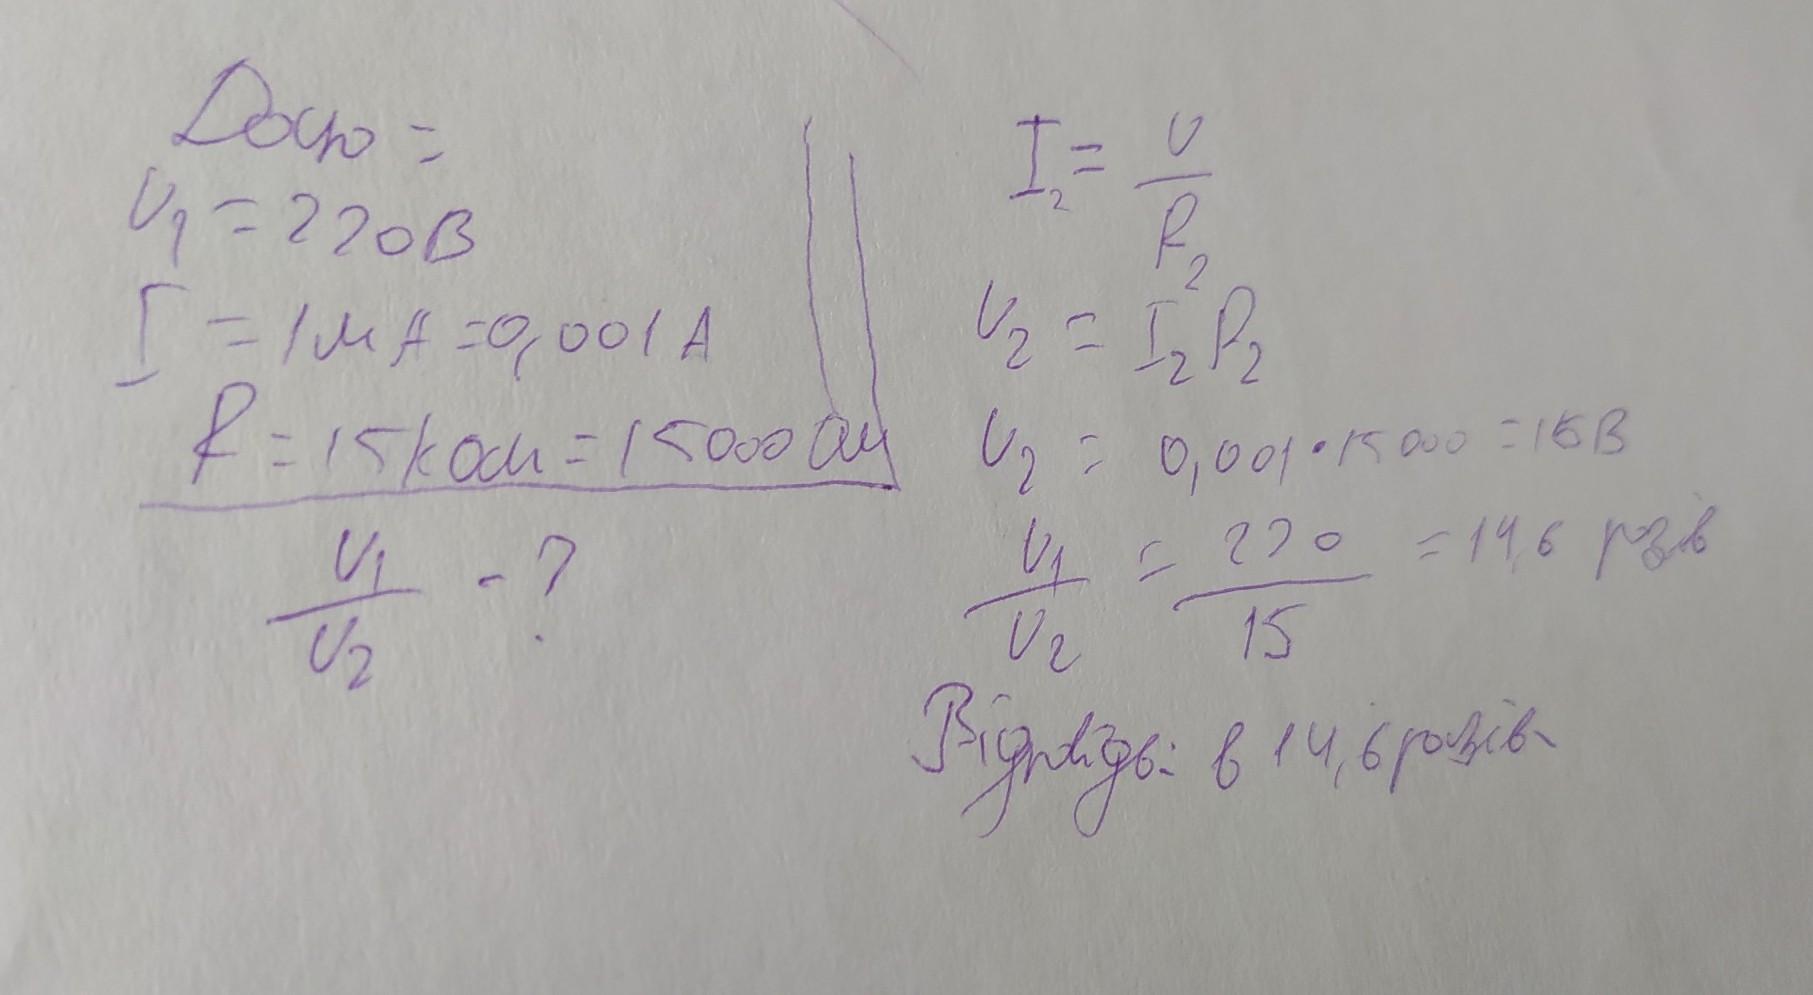 Дано =
U₁ = 220В
I = 1мА = 0,001А
R = 15кОм = 15000 Ом
U₁/U₂ - ?
I₂ = U/R₂
U₂ = I₂R₂
U₂ = 0,001 · 15000 = 15В
U₁/U₂ = 220/15 = 14,6 разів
Відповідь: в 14,6 разів